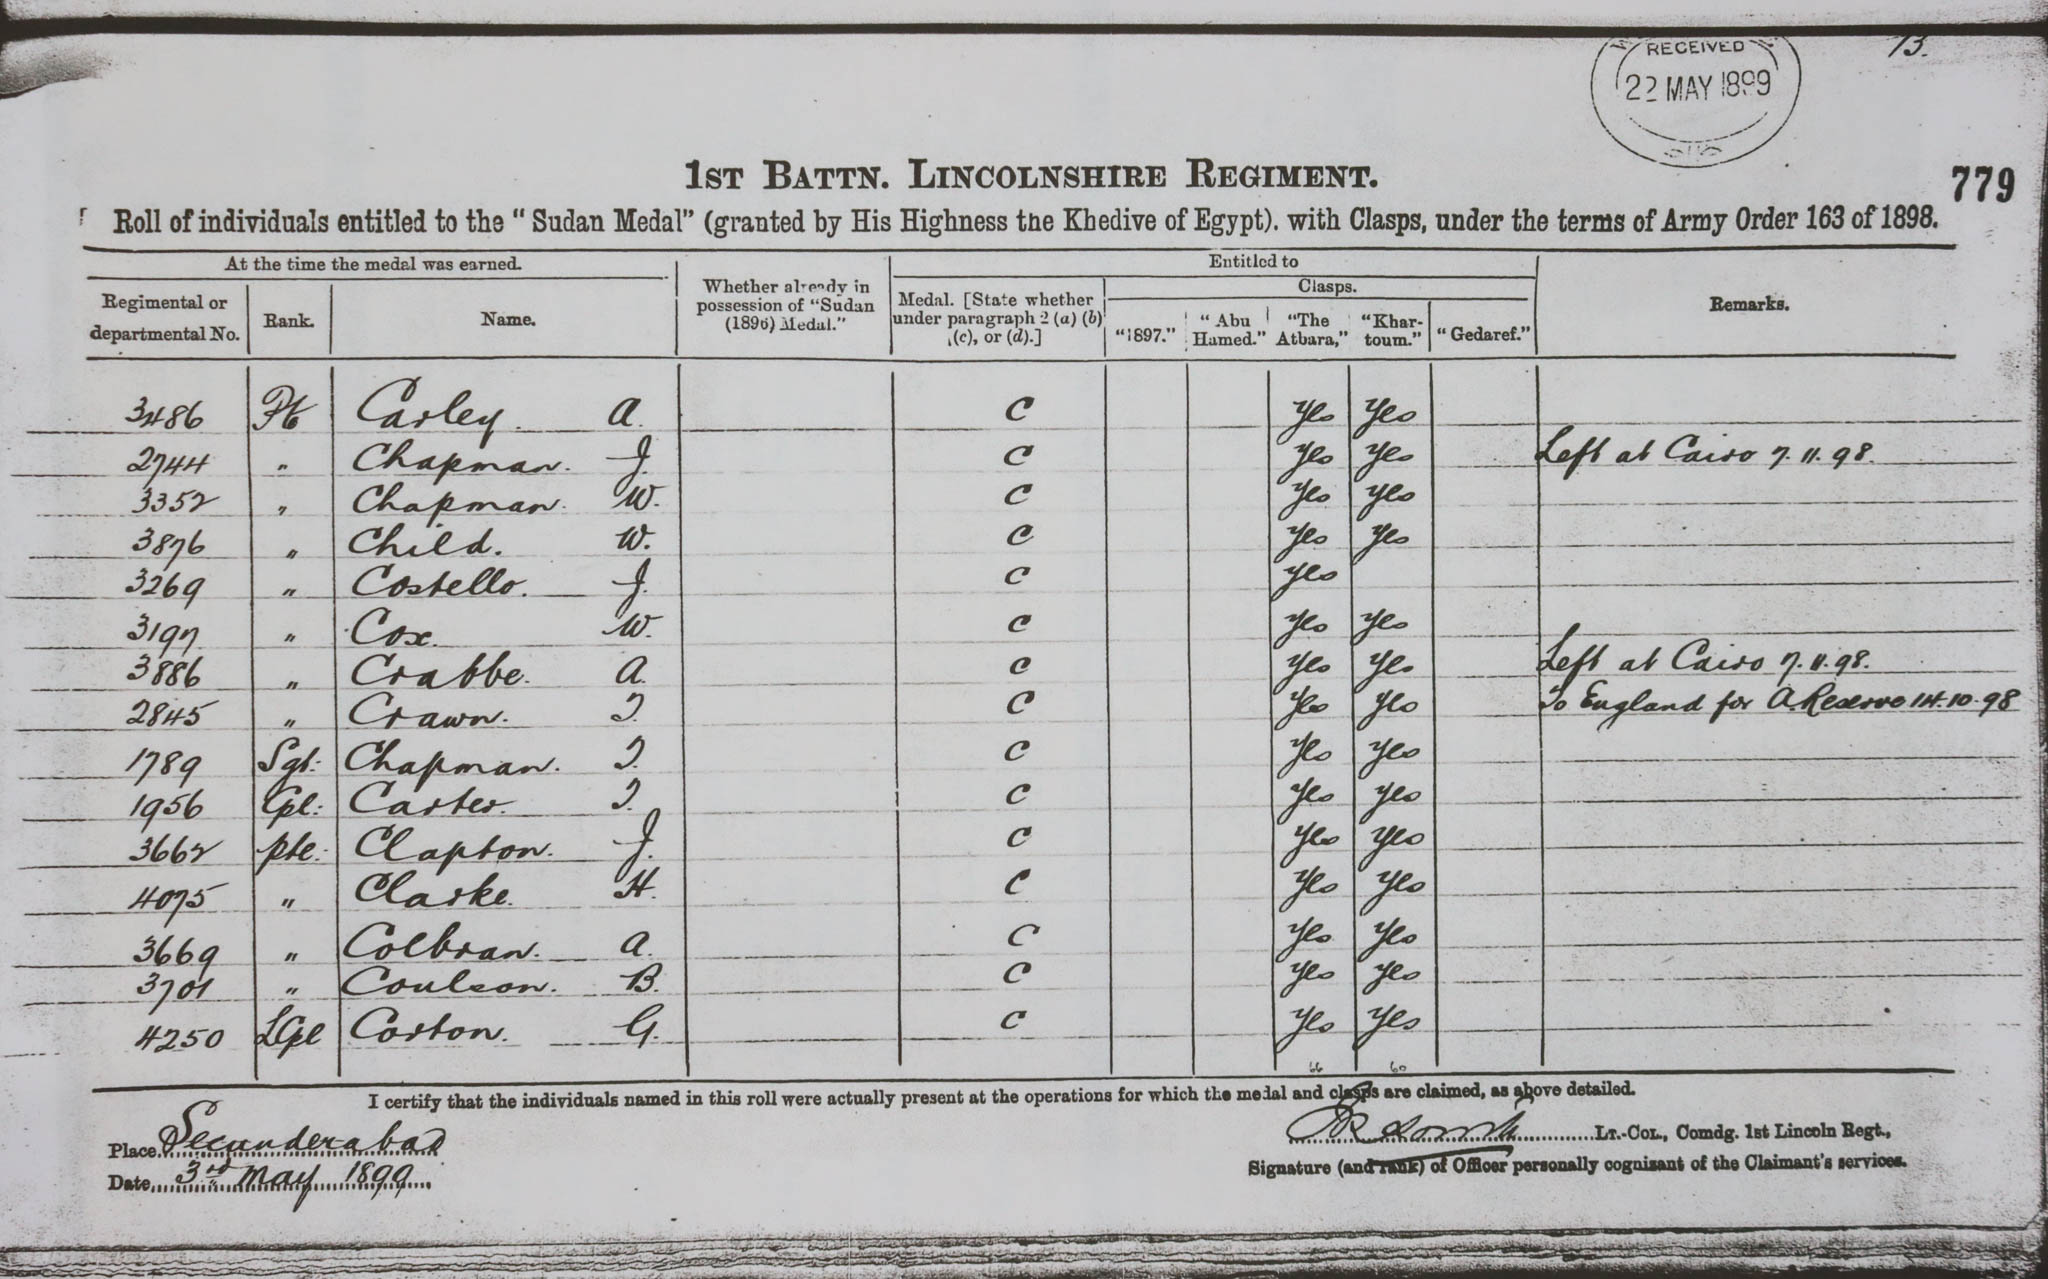 13.
RECEIVED
22 MAY 1899
779
1ST BATTN. LINCOLNSHIRE REGIMENT.
Roll of individuals entitled to the "Sudan Medal" (granted by His Highness the Khedive of Egypt). with Clasps, under the terms of Army Order 163 of 1898.
At the time the medal was earned.
Regimental or departmental No.
Rank.
Name.
Whether already in possession of "Sudan (1896) Medal."
Entitled to
Medal. [State whether under paragraph 2 (a) (b) (c), or (d).]
Clasps.
"1897."
"Abu Hamed."
"The Atbara,"
"Khartoum."
"Gedaref."
Remarks.
3486 Pte Carley. A. C Yes Yes
2744 " Chapman. J. C Yes Yes Left at Cairo 7.11.98.
3352 " Chapman. W. C Yes Yes
3876 " Child. W. C Yes Yes
3269 " Costello. J. C Yes
3197 " Cox. W. C Yes Yes
3886 " Crabbe. A. C Yes Yes Left at Cairo 7.11.98.
2845 " Crawn. T. C Yes Yes To England for A. Reserve 14.10.98
1789 Sgt: Chapman. T. C Yes Yes
1956 Cpl: Carter. T. C Yes Yes
3662 Pte: Clapton. J. C Yes Yes
4075 " Clarke. H. C Yes Yes
3669 " Colbran. A. C Yes Yes
3701 " Coulson. B. C Yes Yes
4250 LCpl Corton. G. C Yes Yes
66 60
I certify that the individuals named in this roll were actually present at the operations for which the medal and clasps are claimed, as above detailed.
Place. Secunderabad
Date. 3rd May 1899
LT.-COL., Comdg. 1st Lincoln Regt.,
Signature (and rank) of Officer personally cognizant of the Claimant's services.